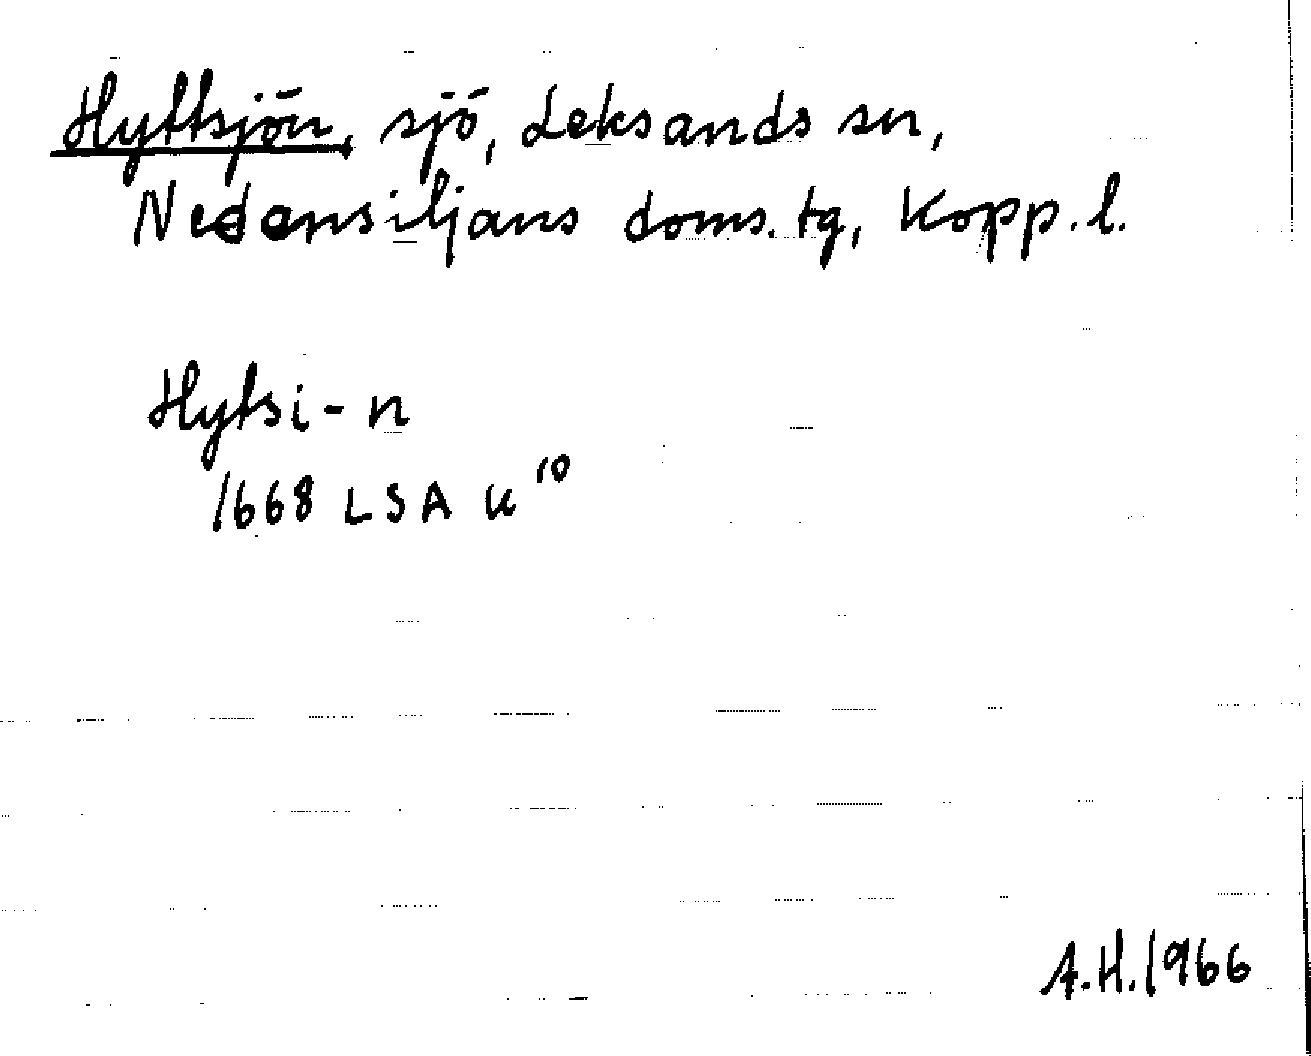 Hyttsjön, sjö, Leksands sn,
Nedansiljans doms.tg, Kopp.l.
Hytsi-n
1668 LSA U¹⁰
A.H.1966